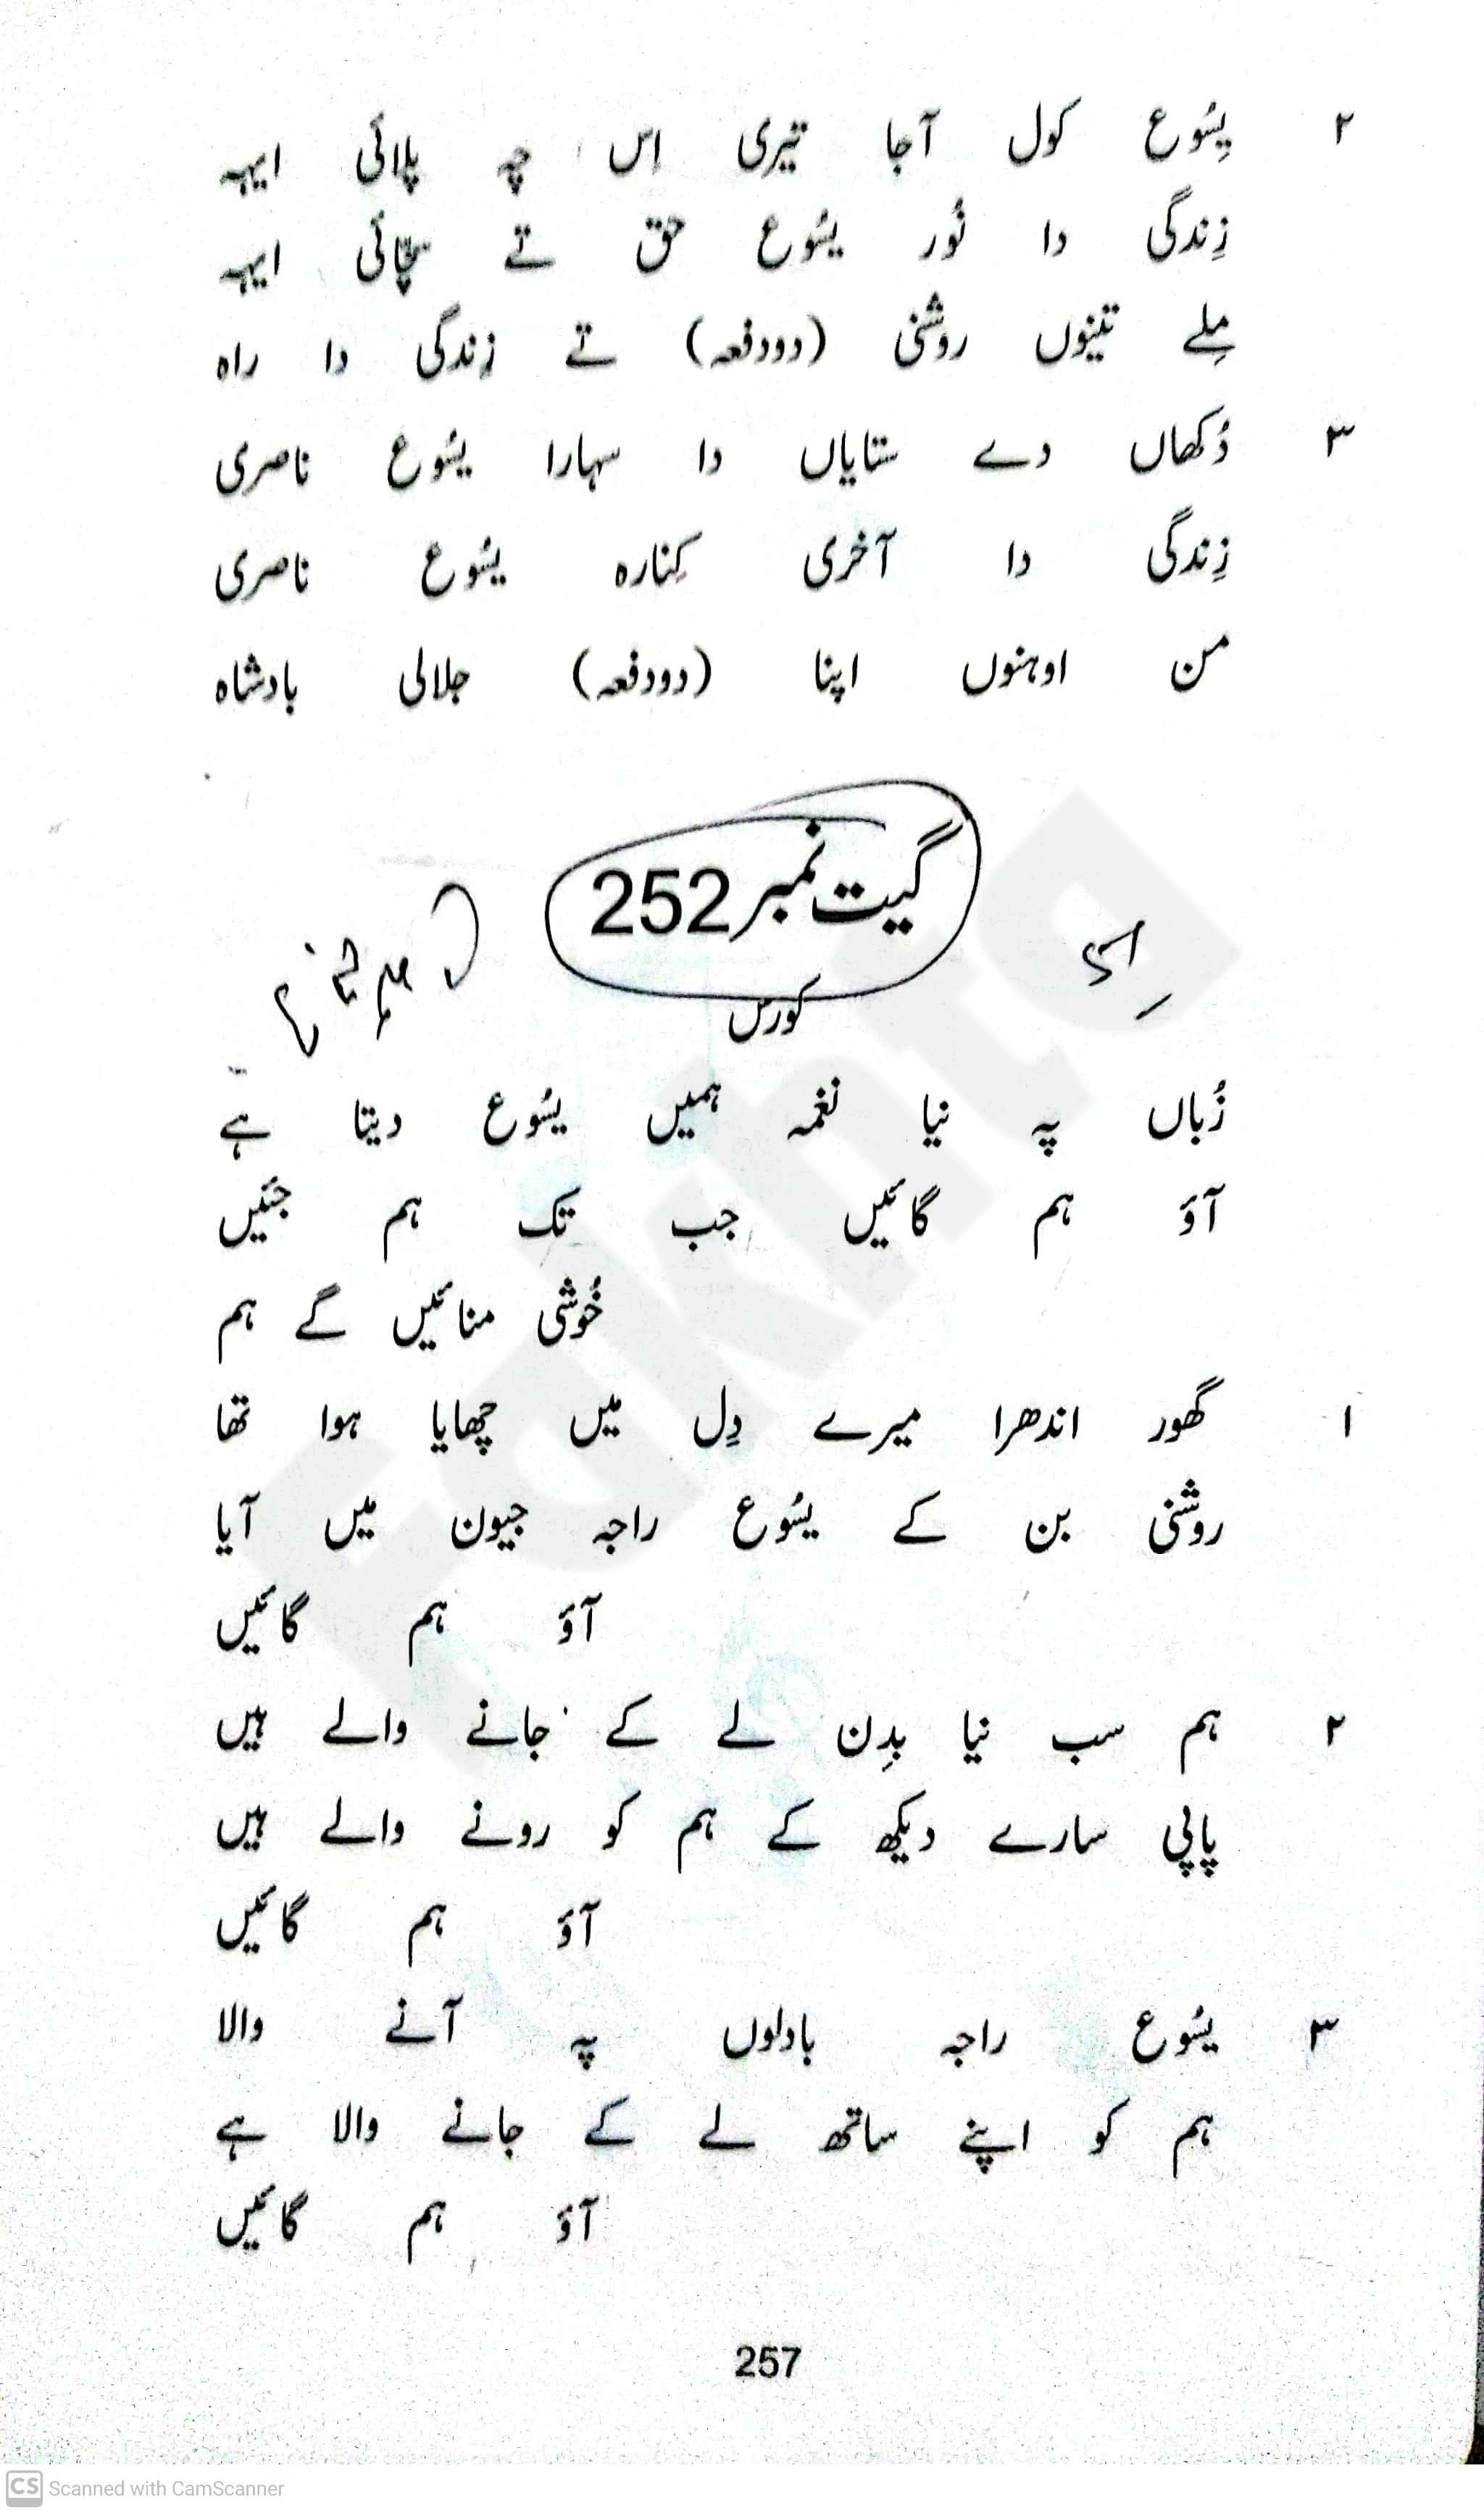 ۲ یِسُوع کول آجا تیری اِس چہ پلائی ایہہ
زِندگی دا نُور یسُوع حق تے سچّائی ایہہ
مِلے تینوں روشنی (دودفعہ) تے زندگی دا راہ
۳ دُکھاں دے ستایاں دا سہارا یسُوع ناصری
زِندگی دا آخری کِنارہ یسُوع ناصری
من اوہنوں اپنا (دودفعہ) جلالی بادشاہ
گیت نمبر 252
کورس
زُباں پہ نیا نغمہ ہمیں یسُوع دیتا ہے
آؤ ہم گائیں جب تک ہم جئیں
خُوشی منائیں گے ہم
۱ گھور اندھرا میرے دِل میں چھایا ہوا تھا
روشنی بن کے یسُوع راجہ جیون میں آیا
آؤ ہم گائیں
۲ ہم سب نیا بدِن لے کے جانے والے ہیں
پاپی سارے دیکھ کے ہم کو رونے والے ہیں
آؤ ہم گائیں
۳ یسُوع راجہ بادلوں پہ آنے والا
ہم کو اپنے ساتھ لے کے جانے والا ہے
آؤ ہم گائیں
257
CS Scanned with CamScanner
Fakhta